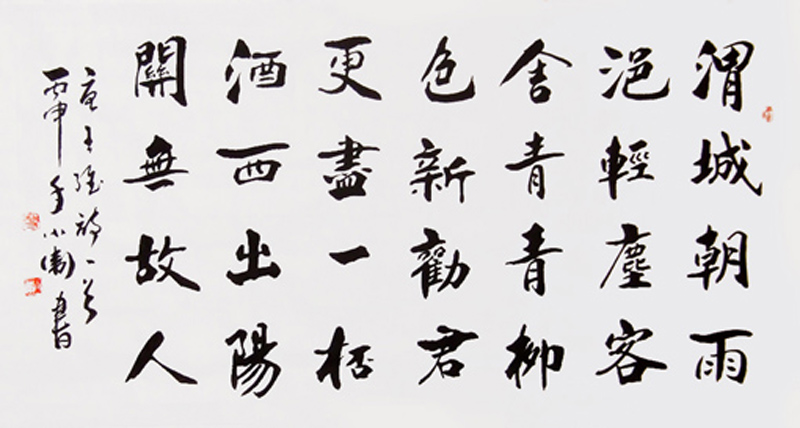 渭城朝雨
浥輕塵客
舍青青柳
色新勸君
更盡一杯
酒西出陽
關無故人
唐王維詩一首
丙申年小書